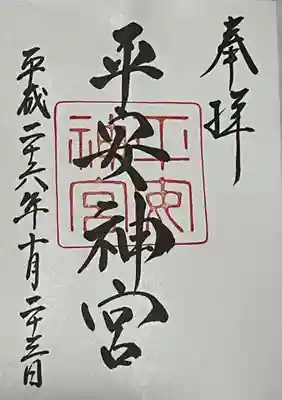 奉拝
平安神宮
平安
神宮
平成二十六年十月二十三日